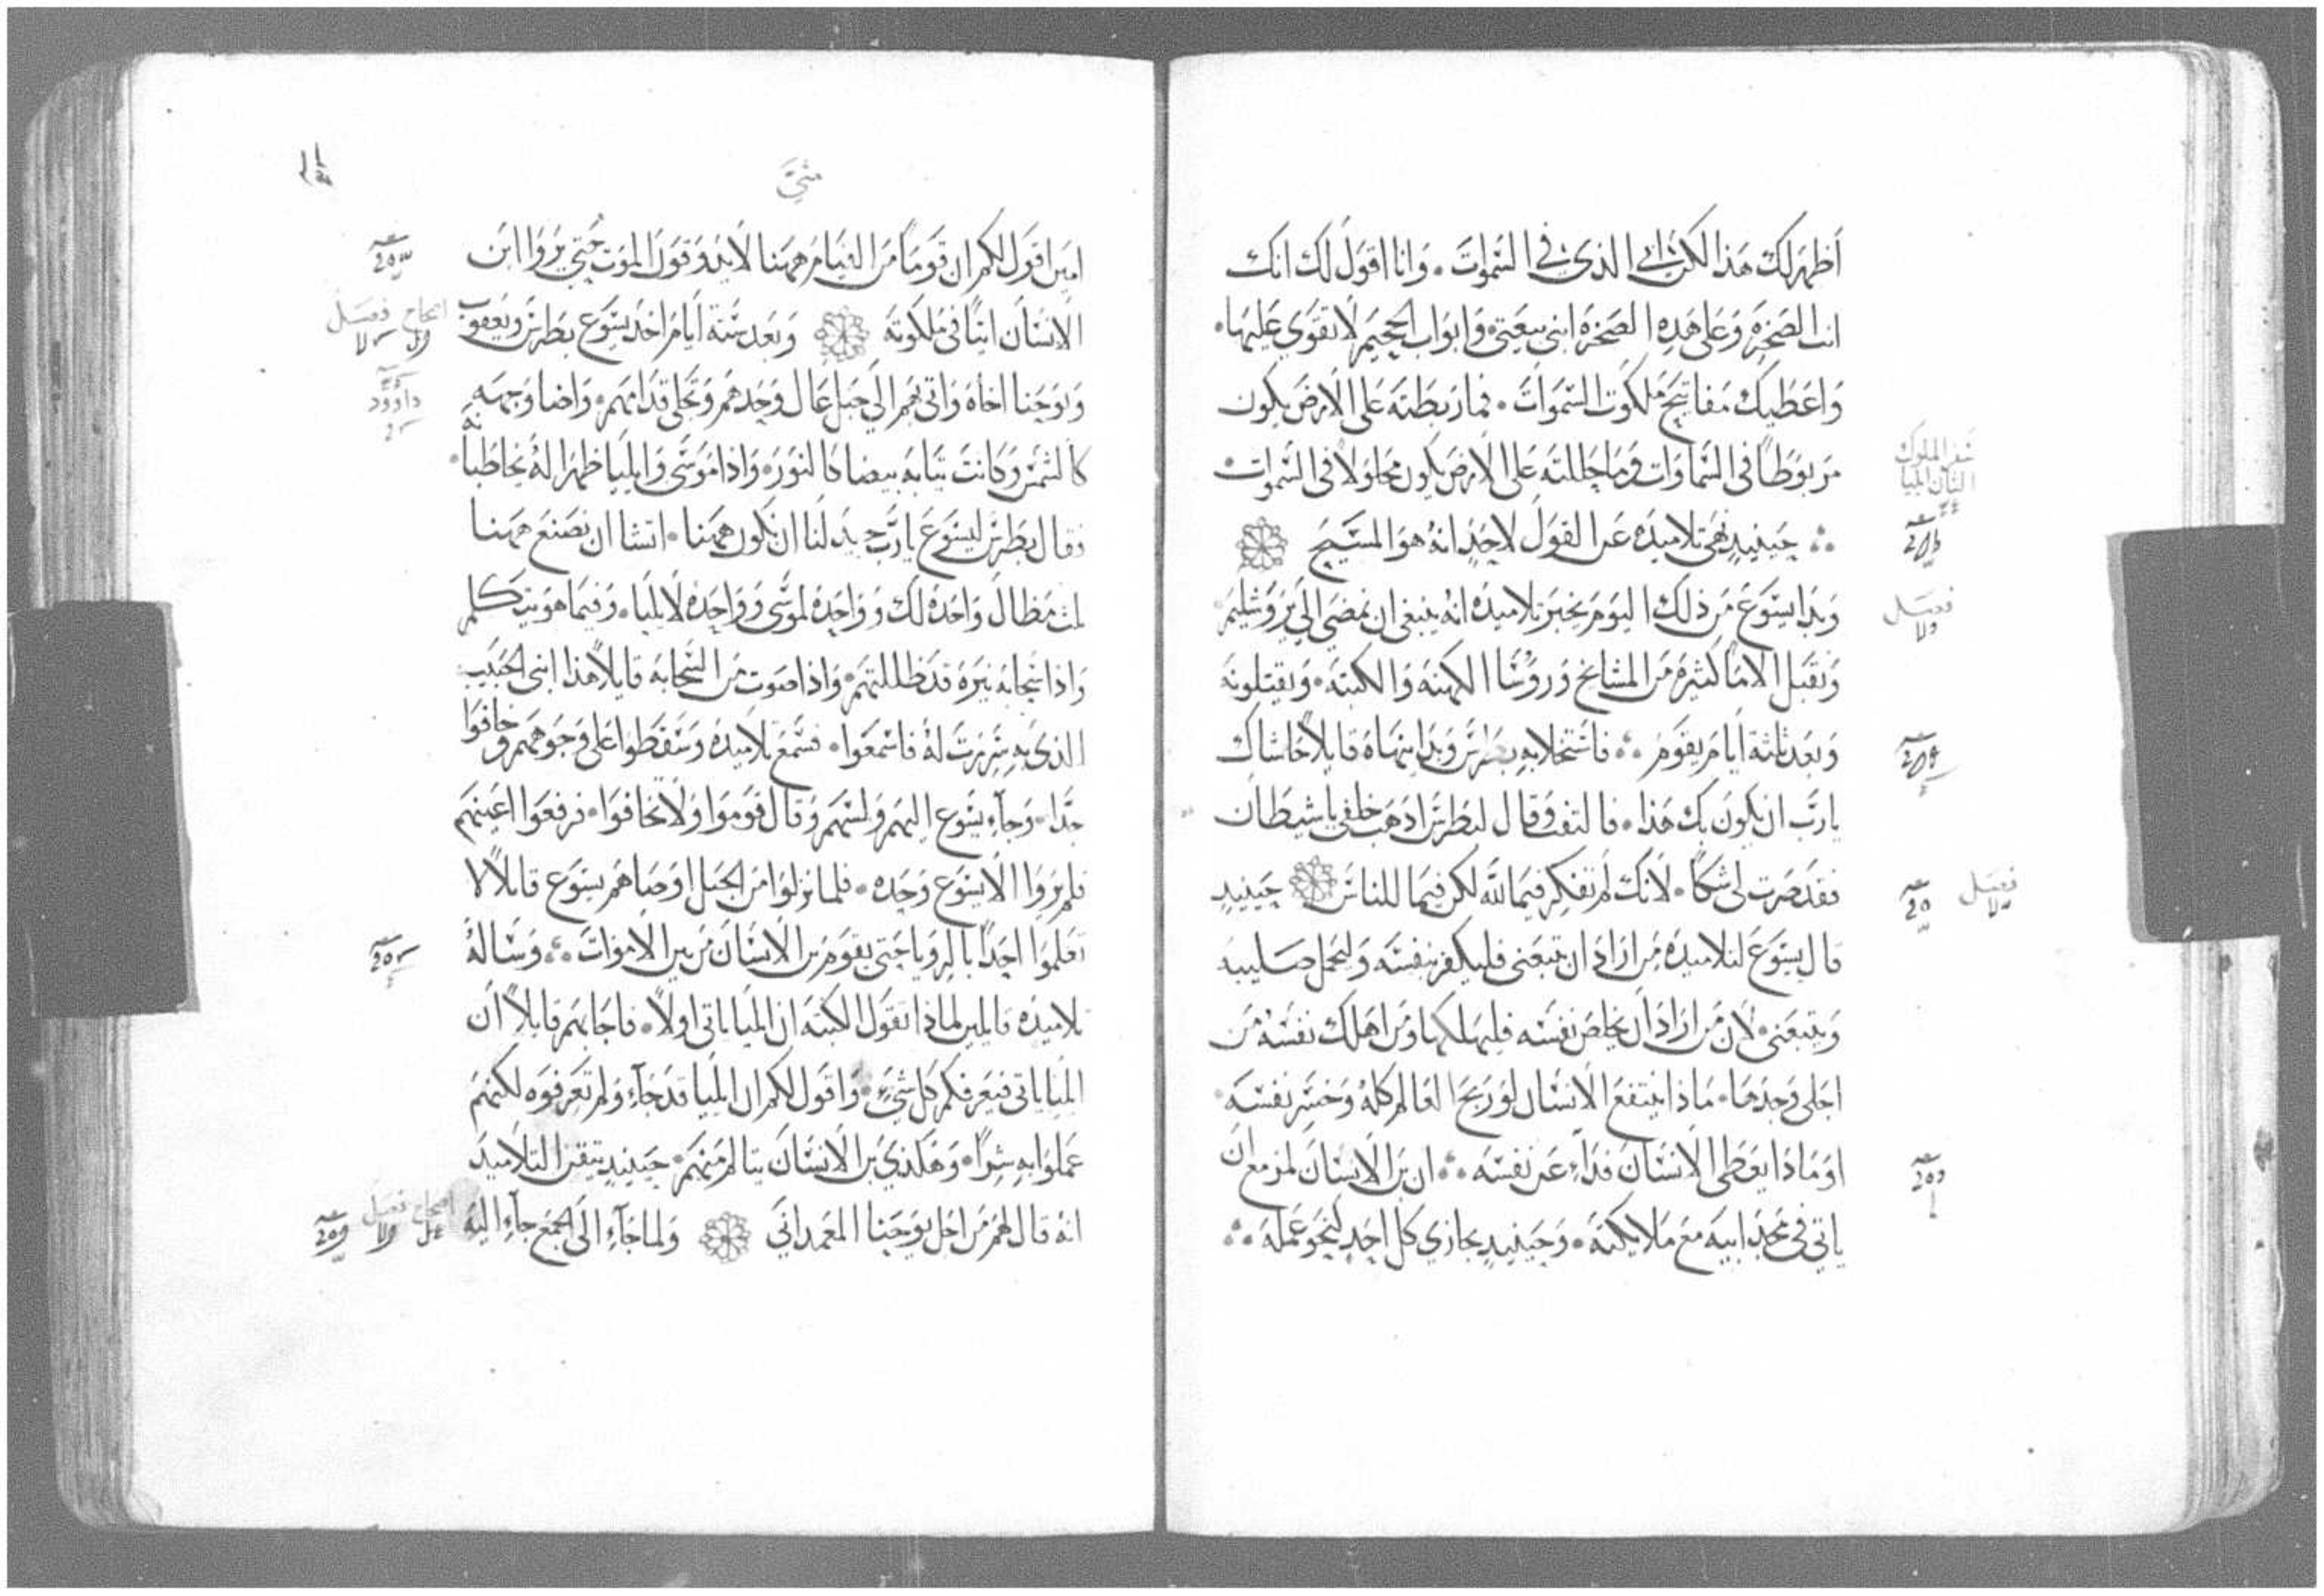 أظهر لك هذا لكن ابي الذي في السموات . وانا اقول لك انك
انت الصخرة وعلى هذه الصخرة ابني بيعتي وابواب الجحيم لا تقوى عليها .
واعطيك مفاتيح ملكوت السموات . فما ربطته على الارض يكون
مربوطا في السماوات وما حللته على الارض يكون محلولا في السموات .
حينيد نهى تلاميده عن القول لاحد انه هو المسيح
وبدا يسوع من ذلك اليوم يخبر تلاميده انه ينبغي ان يمضي الى يروشليم
ويقبل الاما كثيره من المشايخ وروسا الكهنه والكتبه . ويقتلونه
وبعد ثلثة ايام يقوم . فاستخلا به بطرس وبدا ينهاه قايلا حاشاك
يارب ان يكون بك هذا . فالتفت وقال لبطرس اذهب خلفي يا شيطان
فقد صرت لي شكا . لانك لم تفكر فيما لله لكن فيما للناس حينيد
قال يسوع لتلاميده من اراد ان يتبعني فليكفر بنفسه وليحمل صليبه
ويتبعني . لان من اراد ان يخلص نفسه فليهلكها ومن اهلك نفسه من
اجلي وجدها . ماذا ينتفع الانسان لو ربح العالم كله وخسر نفسه .
او ماذا يعطى الانسان فداء عن نفسه . ان بن الانسان لمزمع ان
ياتي في مجد ابيه مع ملايكته . وحينيد يجازي كل احد كنحو عمله .
سفر الملوك
الثاني ايليا
فصل
فصل
متى
امين اقول لكم ان قوما من القيام ههنا لا يدوقون الموت حتى يروا ابن
الانسان اتيا في ملكوته وبعد ستة ايام اخد يسوع بطرس ويعقوب
ويوحنا اخاه واتى بهم الى جبل عال وحدهم وتجلى قدامهم . واضا وجهه
كالشمس وكانت تيابه بيضا كالنور . واذا موسى وايليا ظهرا له يخاطبانه
فقال بطرس ليسوع يارب جيد لنا ان نكون ههنا . اتشا ان نصنع ههنا
ثلث مظال واحده لك وواحده لموسى وواحده لايليا . وفيما هو يتكلم
واذا سحابه نيره قد ظللتهم . واذا صوت من السحابه قايلا هذا ابني الحبيب
الذي به سررت له فاسمعوا . فسمع تلاميده وسقطوا على وجوههم وخافوا
جدا . وجاء يسوع اليهم ولمسهم وقال قوموا ولا تخافوا . فرفعوا اعينهم
فلم يروا الا يسوع وحده . فلما نزلوا من الجبل اوصاهم يسوع قايلا لا
تعلموا احدا بالرويا حتى يقوم بن الانسان من بين الاموات . وسأله
تلاميده قايلين لماذا تقول الكتبه ان ايليا ياتي اولا . فاجابهم قايلا ان
ايليا ياتي فيعرفكم كل شيء . واقول لكم ان ايليا قد جاء ولم تعرفوه لكنهم
عملوا به شرا . وهكذي بن الانسان يتالم منهم . حينيد تيقن التلاميد
انه قال لهم من اجل يوحنا المعمداني ولما جاء الى الجمع جاء اليه
اصحاح فصل
داوود
اصحاح فصل